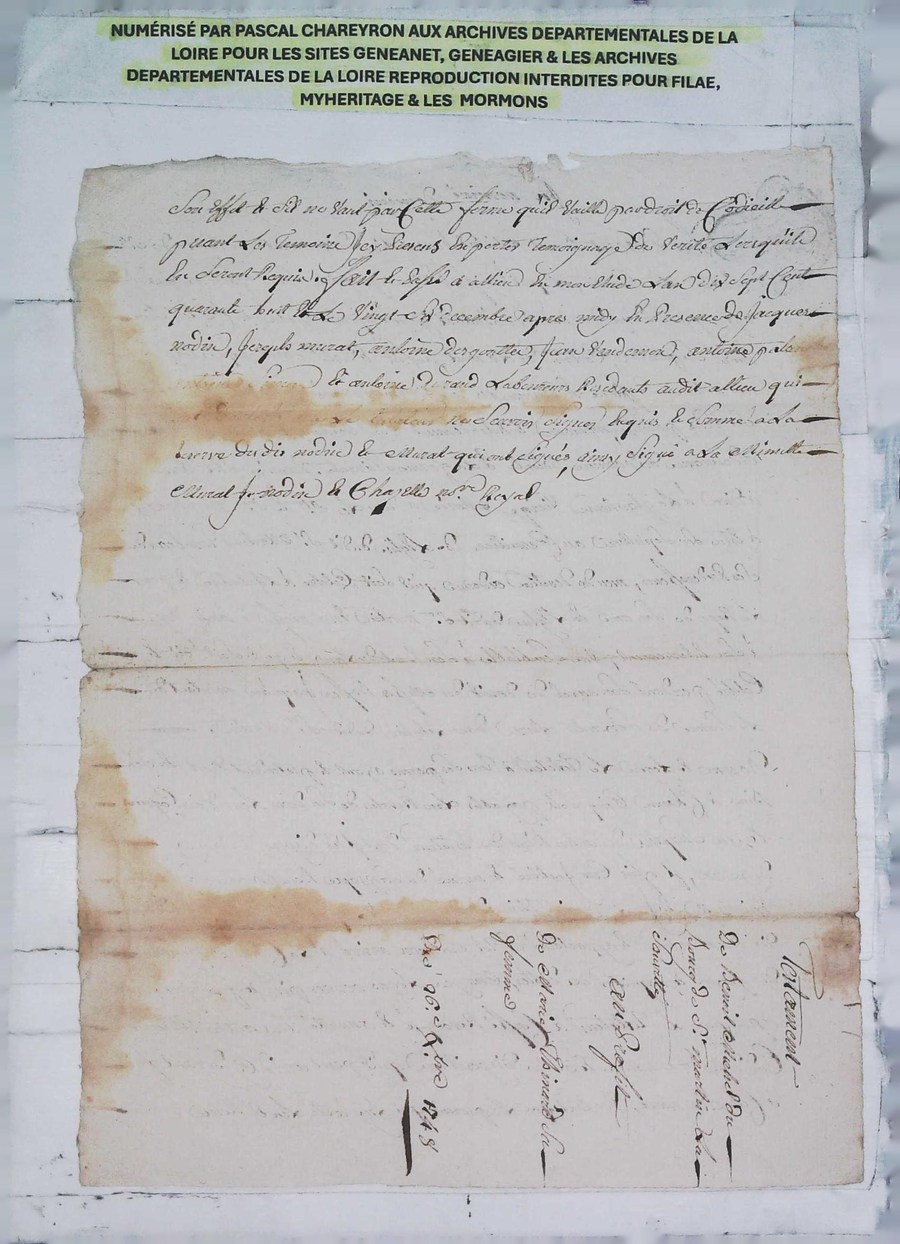 NUMÉRISÉ PAR PASCAL CHAREYRON AUX ARCHIVES DEPARTEMENTALES DE LA
LOIRE POUR LES SITES GENEANET, GENEAGIER & LES ARCHIVES
DEPARTEMENTALES DE LA LOIRE REPRODUCTION INTERDITES POUR FILAE,
MYHERITAGE & LES MORMONS
Son Effet & Sil ne Vaut par Cette forme quil Vaille par droit de Codicille
priant Les Temoins Icy presens den porter Temoignage de Verité Lorsquils
En Seront Requis. fait & passé a allieu En mon Etude Lan dix Sept Cent
quarante huit & Le Vingt Six decembre apres midy En Presence de Jacques
nodin, Joseph murat, antoine desgouttes, Jean Vendemon, antoine
& antoine durand Laboureurs Residants audit allieu qui
ne Scavoir Signer Enquis & Sommé a La
reserve du dit nodin & Murat qui ont Signés ainsy Signé a La Minutte
Murat J. nodin & Chazelle no.re Royal
Testament
De Benoit Michel du
Bourg de St martin La
Sauveté
au Profit
De Marie Thinard Sa
femme
Du 26. Xbre 1748